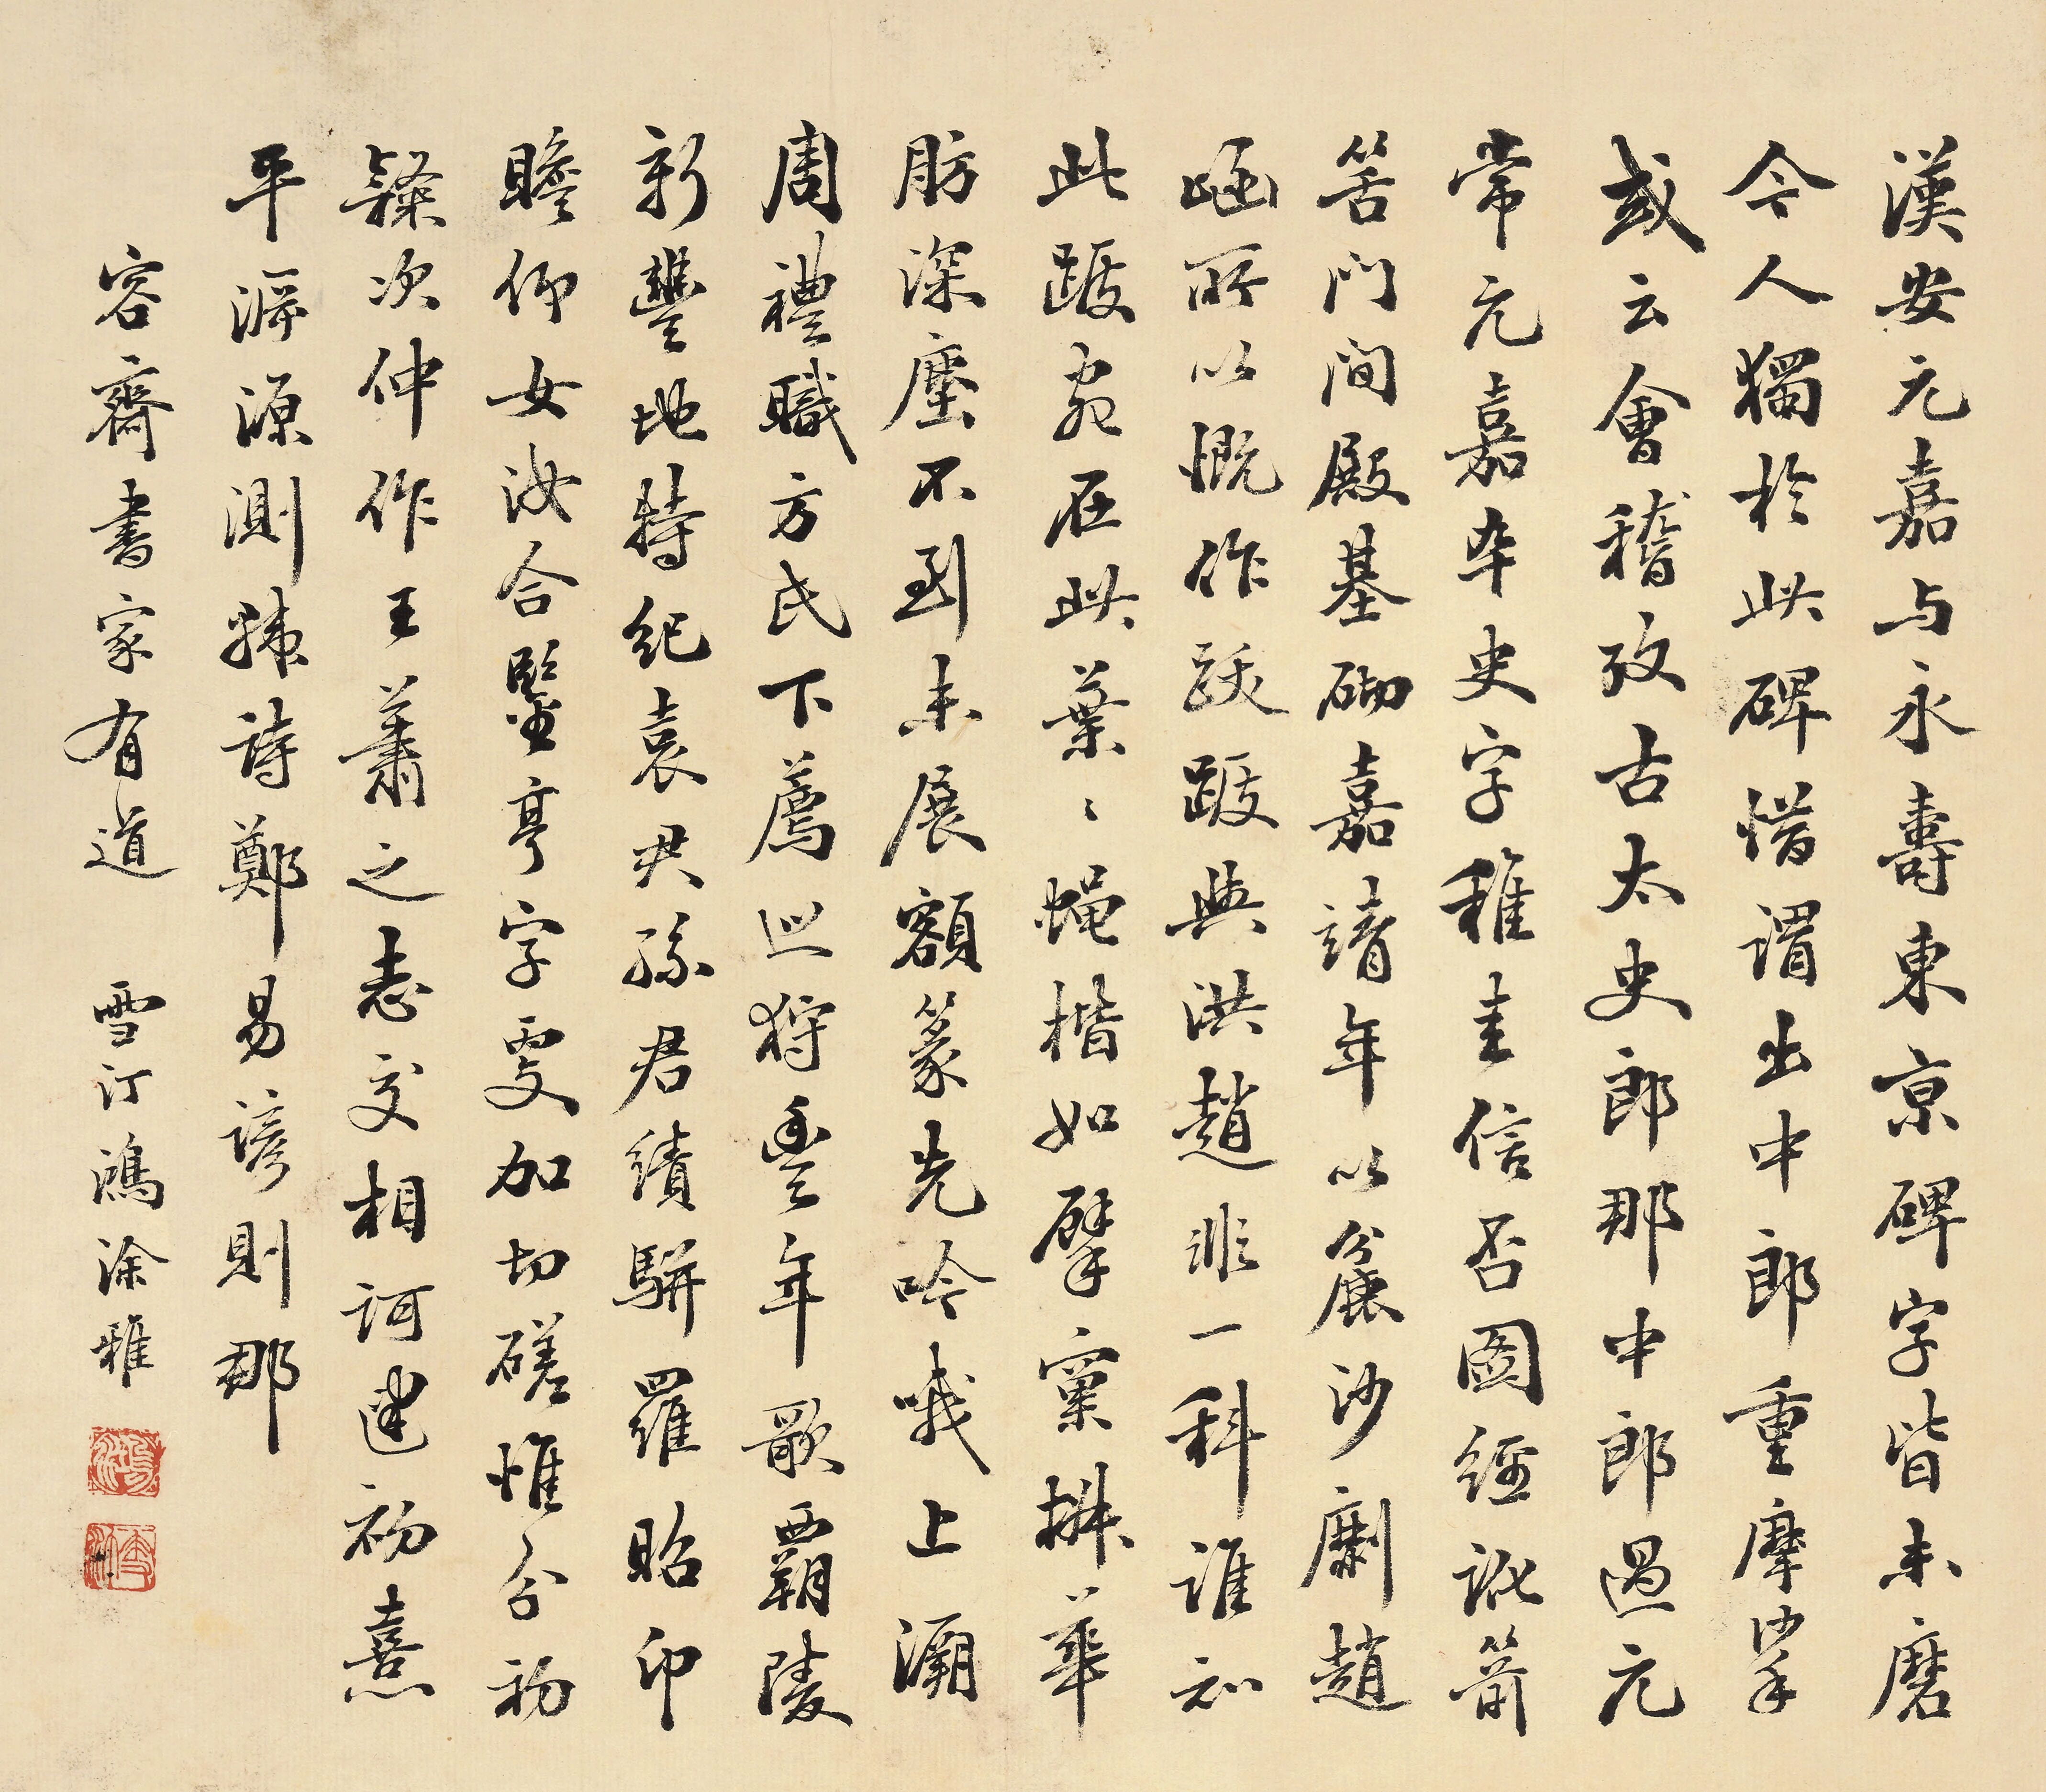 漢安元嘉与永壽東京碑字皆未磨
今人獨於此碑惜謂出中郎重摩挲
或云會稽攷古太史郎那中郎過元
常元嘉卒史字稚圭信否圖經訛箭
筈門間殿基砌嘉靖年以麄沙劘趙
崡所以慨作跋跋與洪趙非一科誰知
此跋宛在此葉〻蠅楷如擘窠搽華
肪深塵不到未展額篆先吟哦上灞
周禮職方氏下薦巡狩豐年歌霸陵
新豐地特紀袁君孫君績駢羅昭卬
瞻仰女汝合鑒亭字雯加切磋惟分初
隸次仲作王蕭之恚交相訶建初熹
平溯源測肄詩鄭易諺則那
容齋書家有道 雪汀鴻塗雅